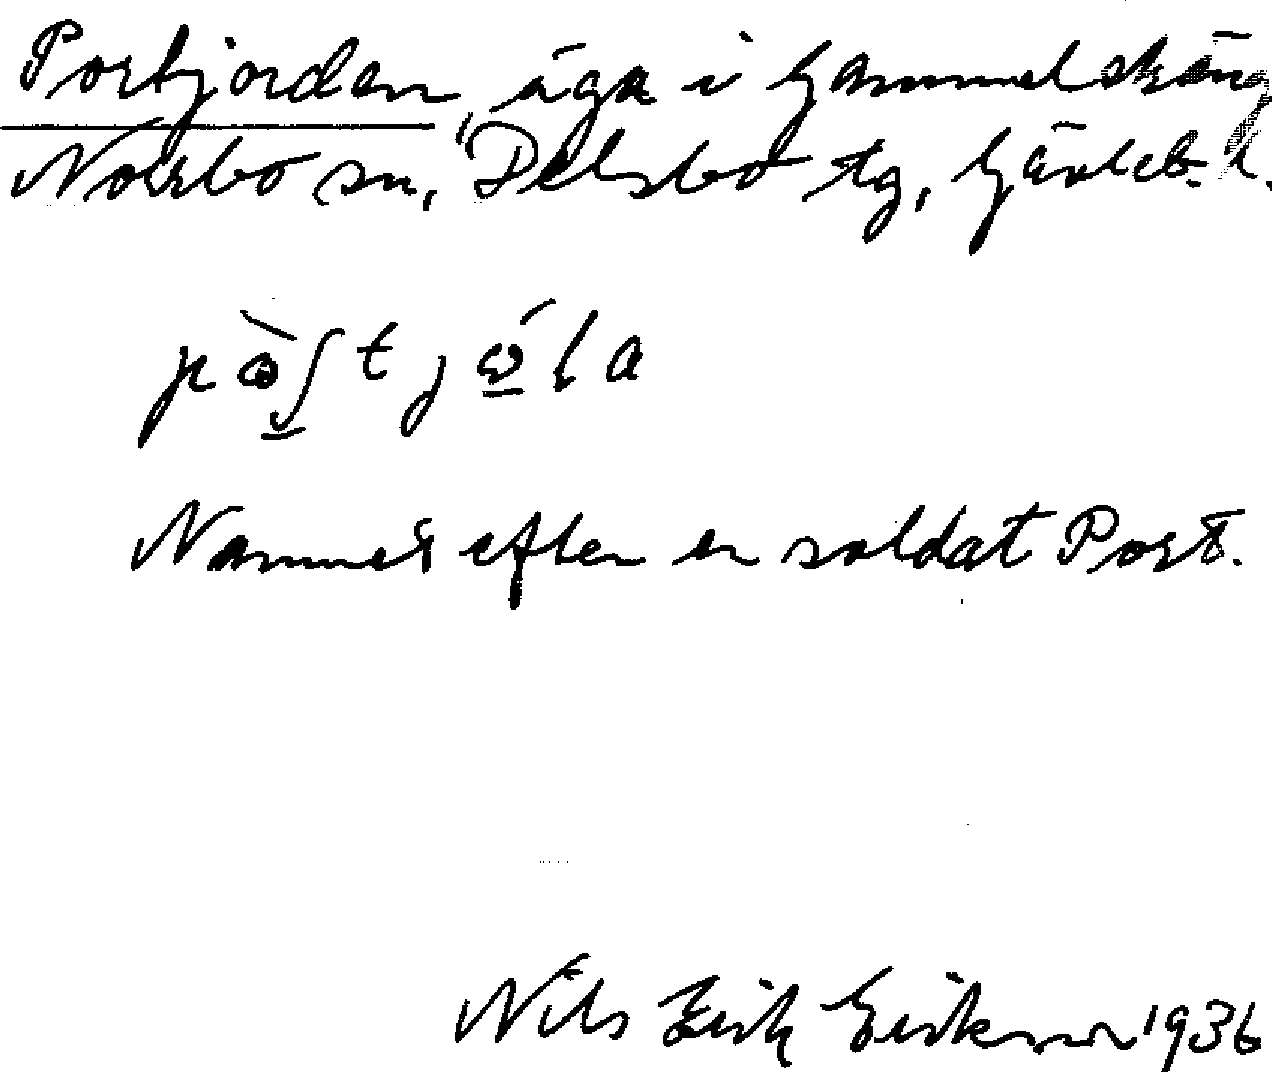 Portjorden, äga i Gammelsäng
Norrbo sn, Delsbo tg, Gävleb. l.
Namnet efter en soldat Port.
Nils Erik Eriksson 1936